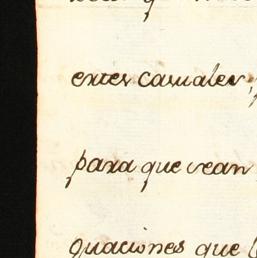 entes casuales,
para que sean
quaciones que